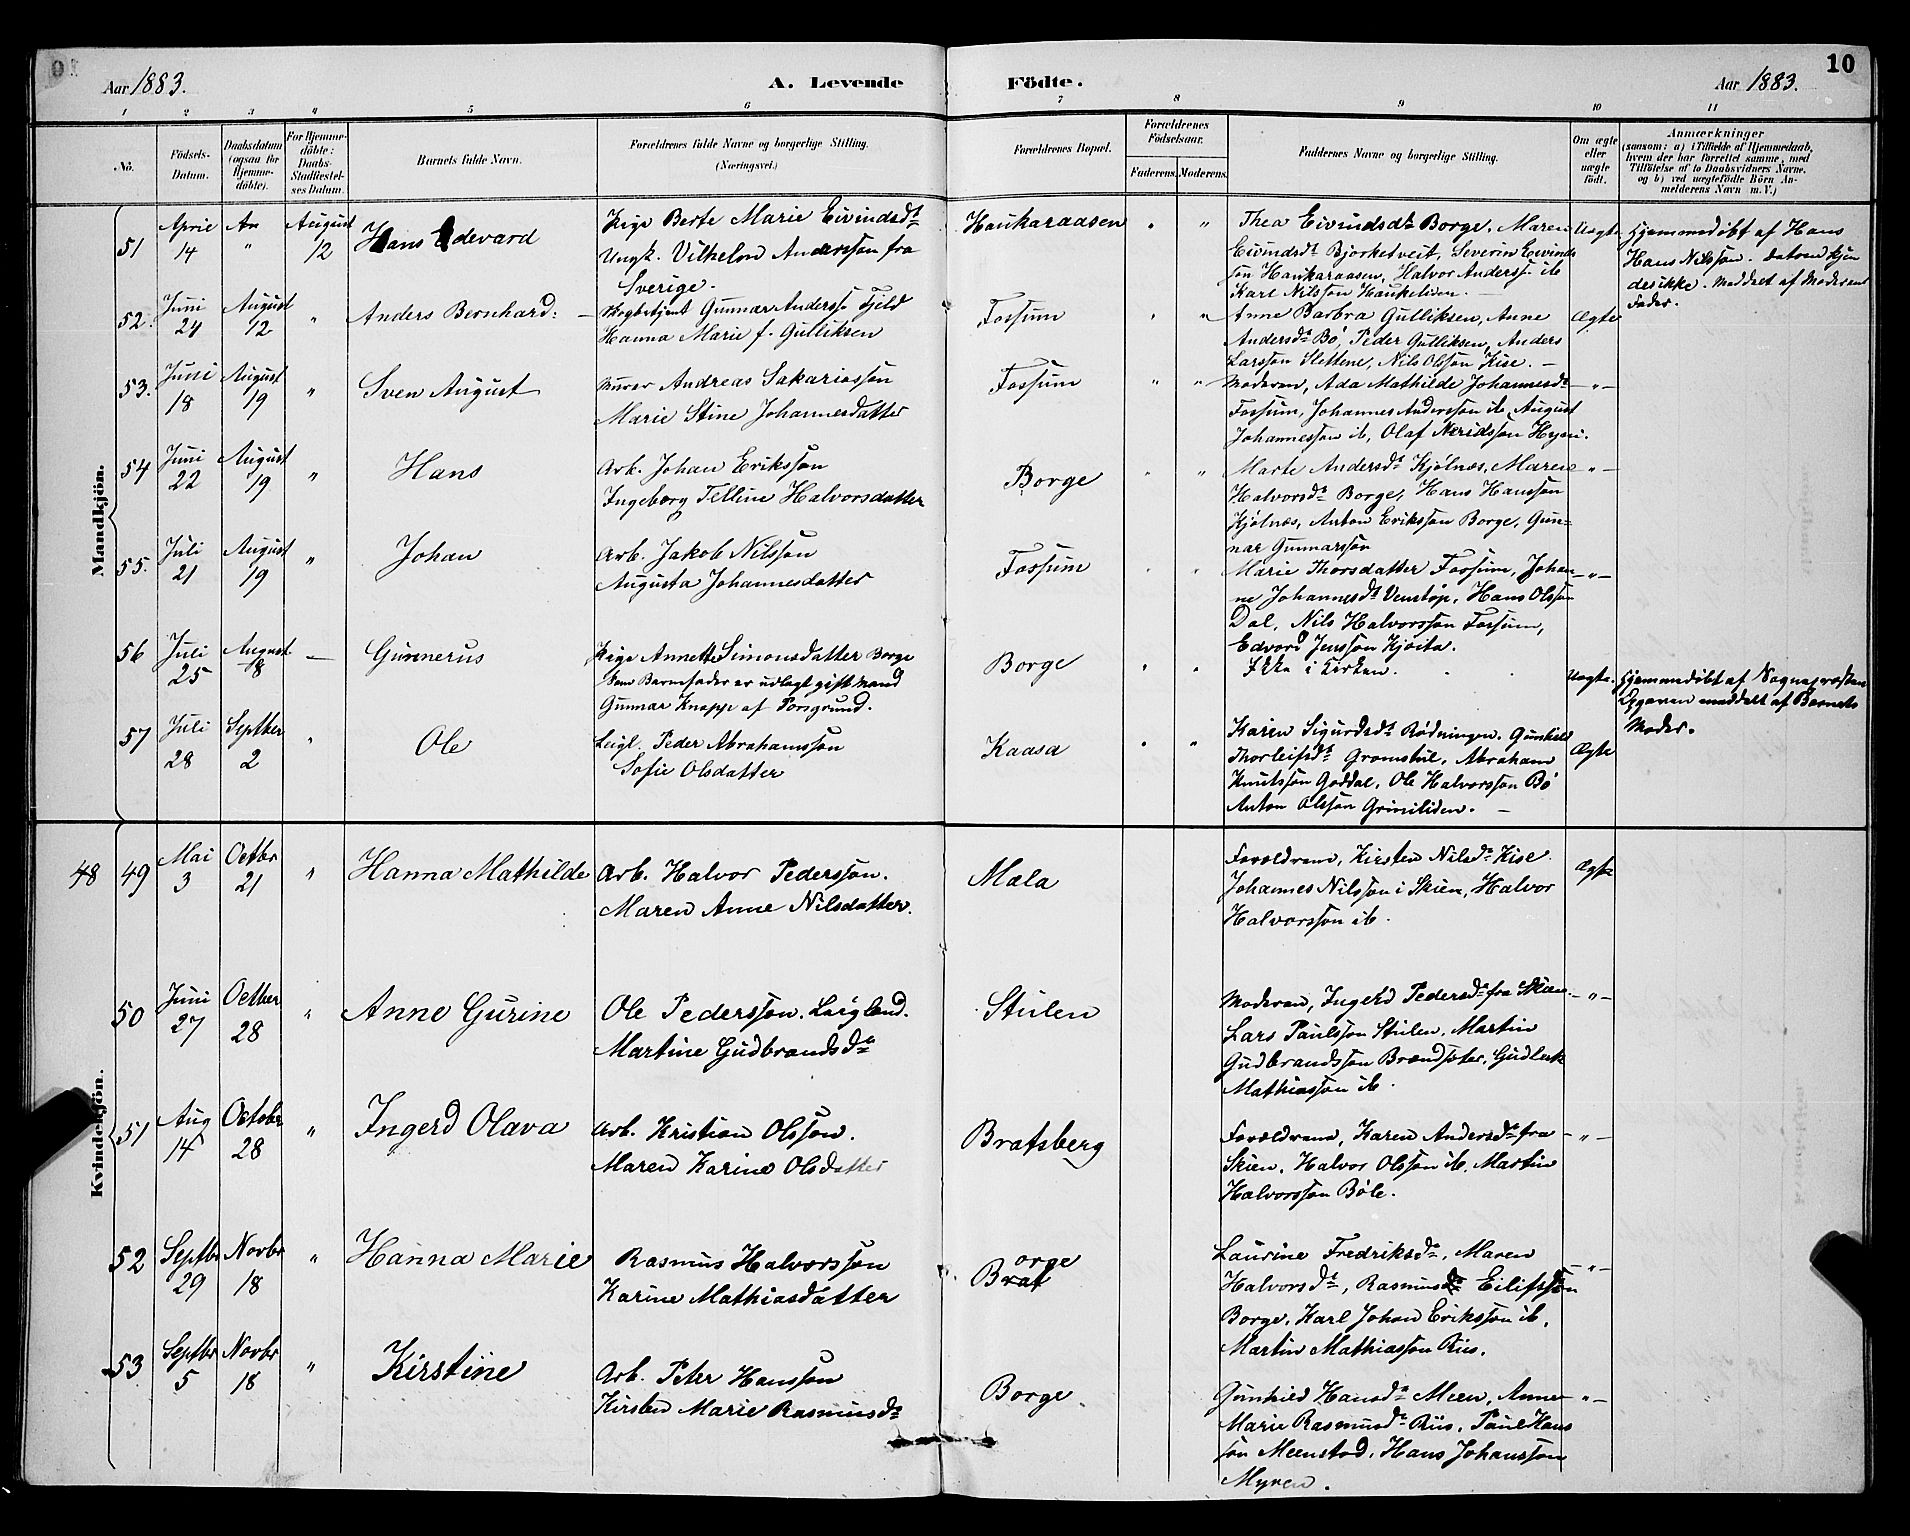 10
Aar 1883.
A. Levende Födte.
Aar 1883.
1 2 3 4 5 6 7 8 9 10 11
No.
Födsels-Datum.
Daabsdatum (ogsaa for Hjemme-döbte).
For Hjemme-döbte: Daabs-Stadfæstel-ses Datum.
Barnets fulde Navn.
Forældrenes fulde Navne og borgerlige Stilling. (Næringsvei.)
Forældrenes Bopæl.
Forældrenes Födselsaar.
Faderens. Moderens.
Faddernes Navne og borgerlige Stilling.
Om ægte eller uægte födt.
Anmærkninger
(saasom: a) i Tilfælde af Hjemmedaab, hvem der har forrettet samme, med Tilföielse af to Daabsvidners Navne, og b) ved uægtefödte Börn An-melderens Navn m. V.)
Mandkjön.
51 April 14 An " August 12
Hans Edevard
Pige Berte Marie Eivindsdt
Ungk. Vilhelm Andersson fra
Sverige.
Haukaraasen " "
Thea Eivindsdt Borge, Maren
Eivindsdt Bjorketveit, Severin Eivinds
søn Haukaraasen, Halvor Anderss. ib
Karl Nilsson Haukeliden. —
Uægte
Hjemmedøbt af Hans
Hans Nilsson. Datoen kjen
des ikke. Meddelt af Moderens
Fader.
52. Juni 24 August 12 "
Anders Bernhard: —
Skogbetjent Gunnar Anderss. Fjeld
Hanna Marie f. Gulliksen
Fossum " "
Anne Barbra Gulliksen, Anne
Andersdt Bö, Peder Gulliksen, Anders
Larsson Slettene, Nils Olsson Kise. —
Ægte
53. Juni 18 August 19 "
Sven August
Murer Andreas Sakariasson
Marie Stine Johannesdatter
Fossum " "
Moderen, Ada Mathilde Johannesdt
Fossum, Johannes Andersson ib, August
Johannesson ib, Olaf Neridsson Hyni.
— " —
54 Juni 22 August 19 "
Hans
Arb. Johan Eriksson
Ingeborg Telline Halvorsdatter
Borge " "
Marte Andersdt Kjølnæs, Maren
Halvorsdt Borge, Hans Hansson
Kjølnæs, Anton Eriksson Borge, Gun-
nar Gunnarsson
" —
55. Juli 21 August 19 "
Johan
Arb. Jakob Nilsson
Augusta Johannesdatter
Fossum " "
Marie Thorsdatter Fossum, Johan-
ne Johannesdt Venstøp, Hans Olsson
Dal, Nils Halvorsson Fossum,
Edvard Jensson Kjøita.
— " —
56 Juli 25 August 18 —
Gunnerus
Pige Annette Simonsdatter Borge
Som Barnefader er udlagt gift Mand
Gunnar Knapp af Porsgrund.
Borge " "
Ikke i Kirken.
Uægte.
Hjemmedøbt af Sognepresten
Opgaven meddelt af Barnets
Moder.
57 Juli 28 Septber 2 "
Ole
Leigl. Peder Abrahamsson
Sofie Olsdatter
Kaasa " "
Karen Sigurdsdt Rødningen, Gunhild
Thorleifsdt Gromstul, Abraham
Knutsson Goddal, Ole Halvorsson Bö
Anton Olsson Griniliden. —
Ægte
Kvindekjön.
48 49 Mai 3 Octbr 21 "
Hanna Mathilde
Arb. Halvor Pedersson.
Maren Anne Nilsdatter.
Mæla
Forældrene, Kirsten Nilsdt Kise.
Johannes Nilsson i Skien, Halvor
Halvorsson ib.
Ægte
50 Juni 27 Octber 28 "
Anne Gurine
Ole Pedersson. Leiglend.
Martine Gudbrandsdt
Stulen
Moderen, Ingerd Pedersdt fra Skien
Lars Paulsson Stulen, Martin
Gudbrandsson Brændsæter, Gudleik
Mathiasson ib.
— " —
51 Aug 14 October 28 "
Ingerd Olava
Arb. Kristian Olsson.
Maren Karine Olsdatter
Bratsberg
Forældrene, Karen Andersdt fra
Skien, Halvor Olsson ib. Martin
Halvorsson Bøle.
— " —
52 Septbr 29 Novbr 18 "
Hanna Marie
Rasmus Halvorsson
Karine Mathiasdatter
Borge
Laurine Fredriksdt, Maren
Halvorsdt, Rasmus Eilifsson
Borge, Karl Johan Eriksson ib,
Martin Mathiasson Riis.
— " —
53 Septbr 5 Novbr 18 "
Kirstine
Arb. Peter Hansson
Kirsten Marie Rasmusdt
Borge
Gunhild Hansdt Meen, Anne
Marie Rasmusdt Riis, Paul Hans
søn Meenstad, Hans Johansson
Myren.
— " —